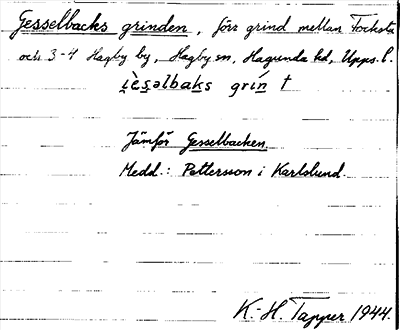 Gesselbacks grinden, förr grind mellan Focksta
och 3-4 Hagby by, Hagby sn, Hagunda hd, Upps. l.
i̯èsəlbaks grín †
Jämför Gesselbacken.
Medd.: Pettersson i Karlslund.
K.-H. Tapper 1944.